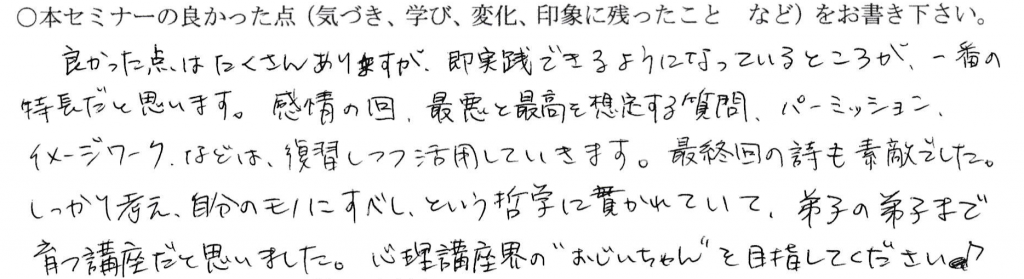 ○本セミナーの良かった点（気づき、学び、変化、印象に残ったこと　など）をお書き下さい。
良かった点はたくさんありますが、即実践できるようになっているところが、一番の
特長だと思います。感情の回、最悪と最高を想定する質問、パーミッション、
イメージワーク、などは、復習しつつ活用していきます。最終回の詩も素敵でした。
しっかり考え、自分のモノにすべし、という哲学に貫かれていて、弟子の弟子まで
育つ講座だと思いました。心理講座界の"おじいちゃん"を目指してください